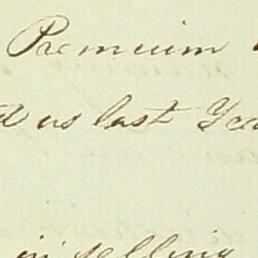 Premium
us last Yea
in selling